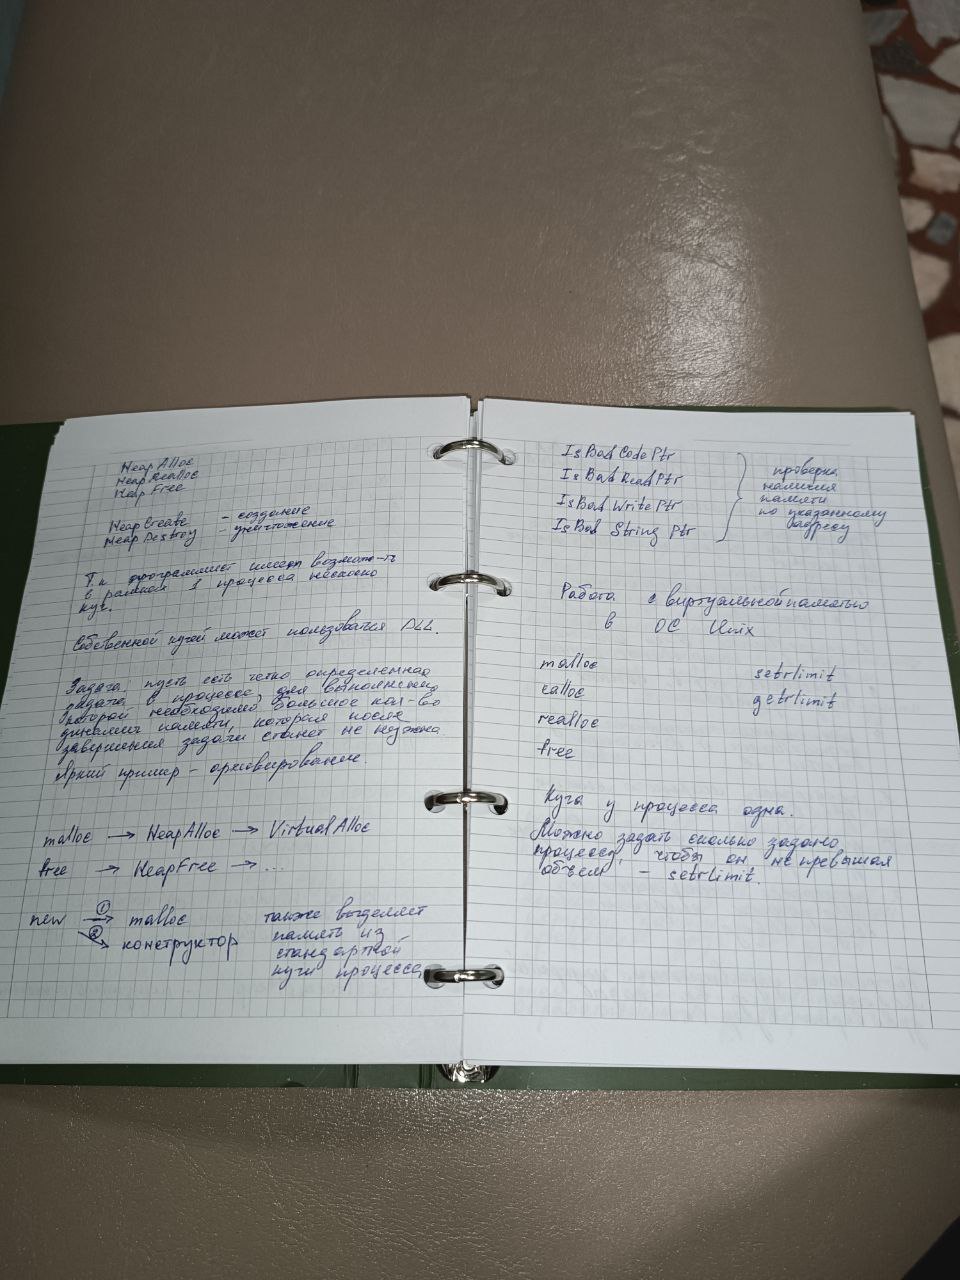 HeapAlloc
HeapRealloc
HeapFree
HeapCreate - создание
HeapDestroy - уничтожение
Т.к программист имеет возможн-ть
в рамках 1 процесса несколько
куч.
Собственной кучей может пользоваться DLL.
Задача: пусть есть четко определенная
задача в процессе, для выполнения
которой необходимо большое кол-во
динамич памяти, которая после
завершения задачи станет не нужна
Яркий пример - архивирование.
malloc → HeapAlloc → VirtualAlloc
free → HeapFree → ...
new ① → malloc также выделяет
② → конструктор память из
стандартной
кучи процесса
IsBadCodePtr
IsBadReadPtr
IsBadWritePtr
IsBadStringPtr
проверка
наличия
памяти
по указанному
адресу
Работа с виртуальной памятью
в ОС Unix
malloc setrlimit
calloc getrlimit
realloc
free
Куча у процесса одна.
Можно задать сколько задано
процессу, чтобы он не превышал
объем - setrlimit.